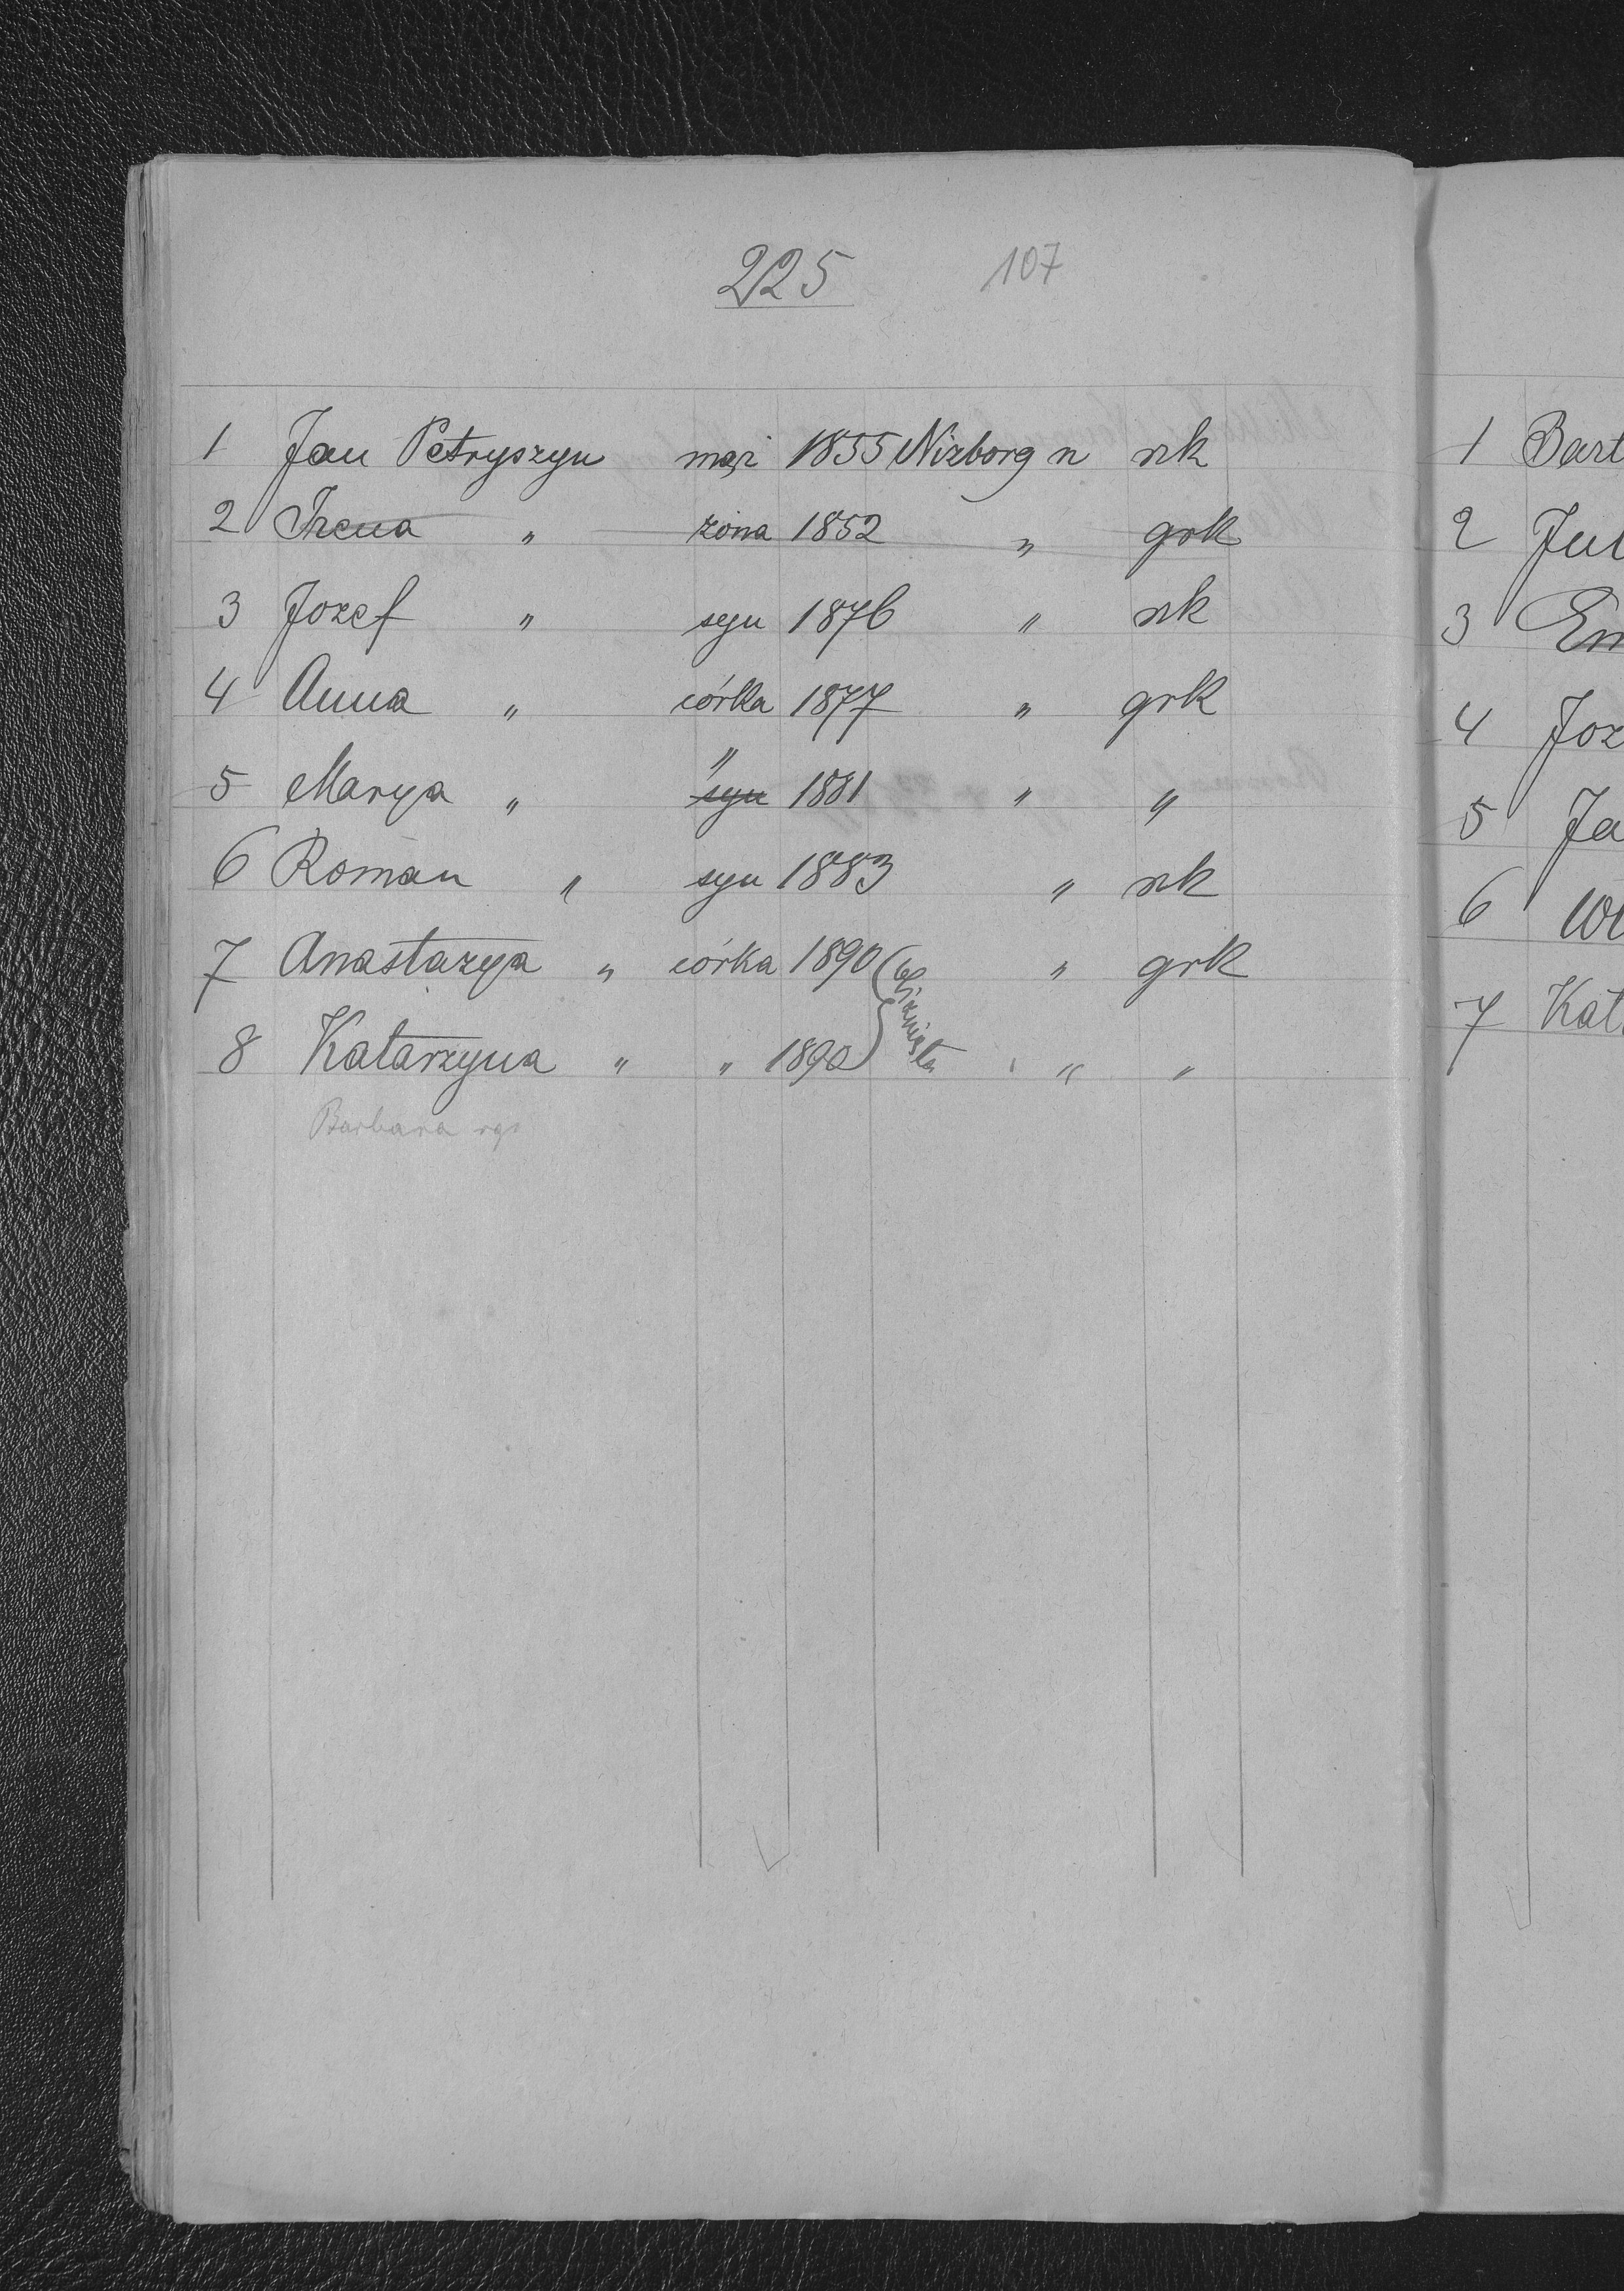 225 107
1 Jan Petryszyn mąż 1855 Nizborg n rzk
2 Irena " żona 1852 " grk
3 Jozef " syn 1876 " rzk
4 Anna " córka 1877 " grk
"
5 Marya " syn 1881 " "
6 Roman " syn 1883 " rzk
7 Anastazya " córka 1890 " grk
bliźnięta
8 Katarzyna " " 1890 " "
Barbara
1 Bart
2 Jul
3 Em
4 Joz
5 Ja
6 Wł
7 Kat